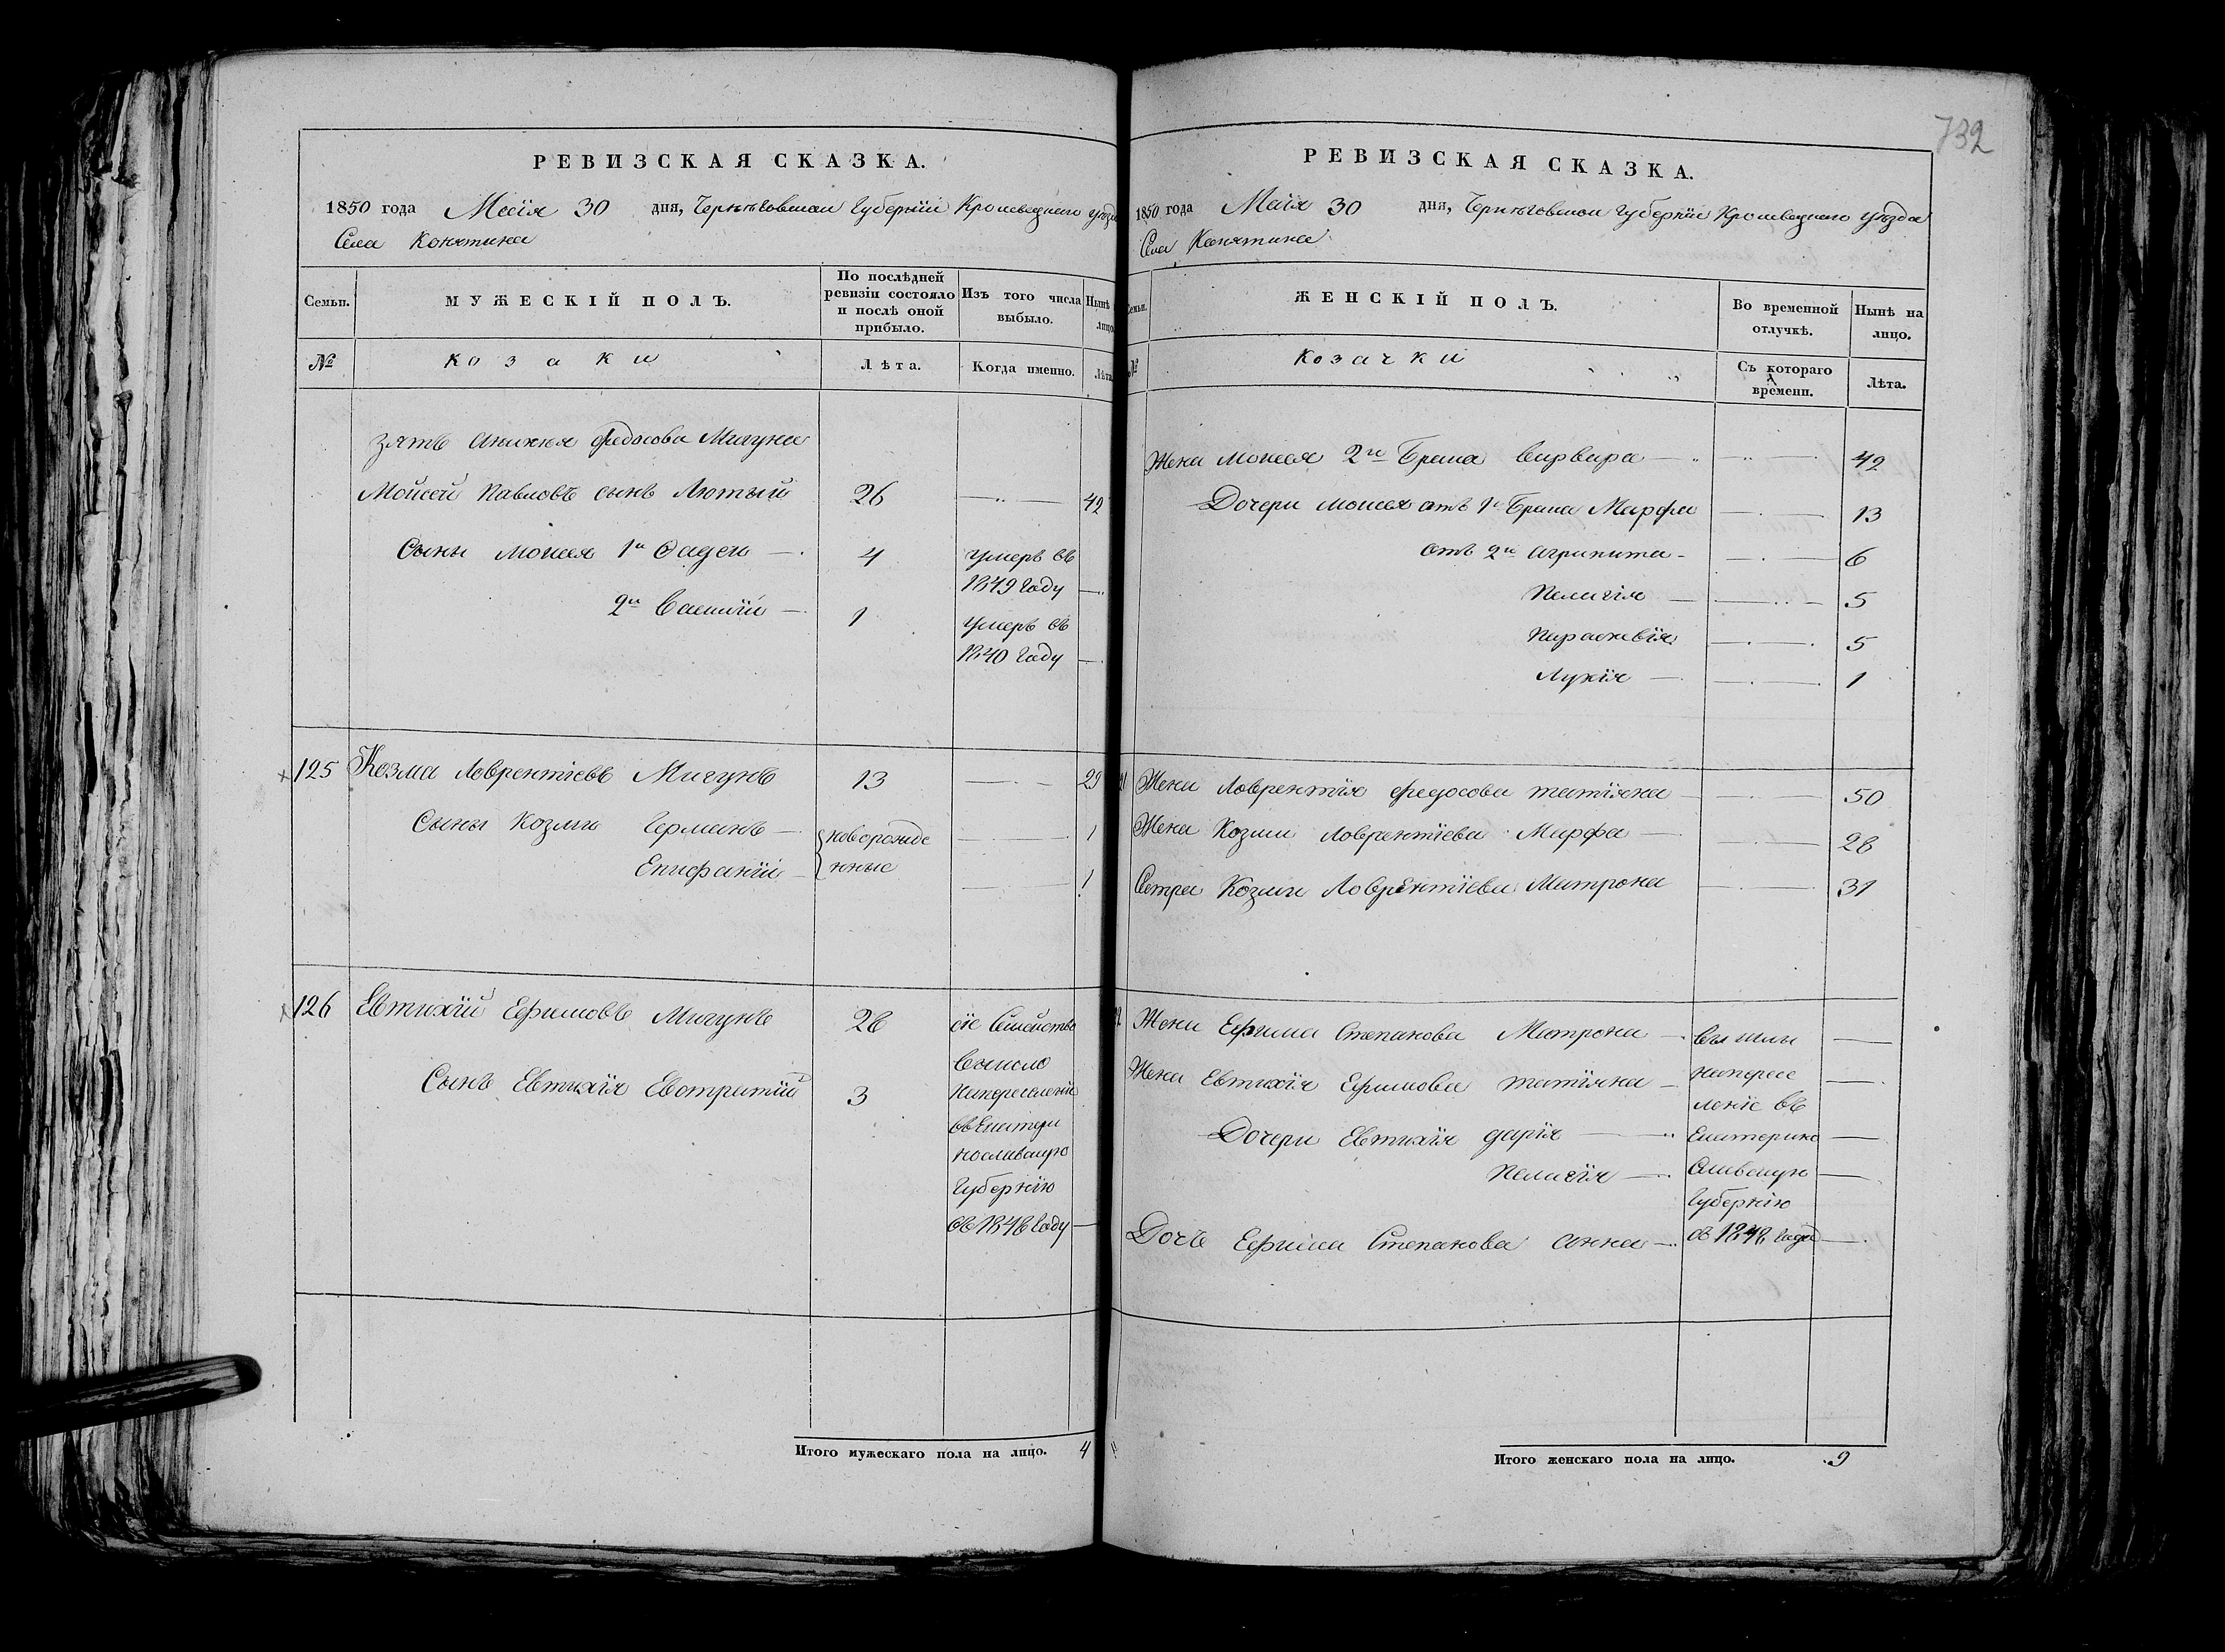 РЕВИЗСКАЯ СКАЗКА.
1850 года Маія 30 дня, Черниговской Губерніи Кролевецкаго уезда
Села Конятина
Семьи. МУЖЕСКІЙ ПОЛЪ. По послѣдней ревизіи состояло и послѣ оной прибыло. Изъ того числа выбыло. Нынѣ лицо.
№ козаки Лѣта. Когда именно. Лѣта
зять Федосова Мигуна
Мойсей Павловъ сынъ Лютый 26 42
Сыны Моисея 1й Фадей 4 умеръ въ
1849 году
2й Василій 1 умеръ въ
1840 году
125 Козма Лаврентіевъ Мигунъ 13 29
Сыны Козмы Германъ новорожде 1
Епифаній нные 1
126 Евтихій Ефимовъ Мигунъ 28 сіе Семейство
вышло
Сынъ Евтихія Евстратій 3 напереселеніе
въ Екатери
нославскую
Губернію
въ 1848 году
Итого мужескаго пола на лицо. 4
732
РЕВИЗСКАЯ СКАЗКА.
1850 года Маія 30 дня, Черниговской Губерніи Кролевецкаго уезда
Села Конятина
Семьи. ЖЕНСКІЙ ПОЛЪ. Во временной отлучкѣ. Нынѣ на лицо.
№ Козачки Съ котораго времени. Лѣта.
Жена Моисея 2го Брака Варвара 42
Дочери Моисея отъ 1го Брака Марфа 13
отъ 2го Агрипина 6
Пелагія 5
Параскевія 5
Лукія 1
Жена Лаврентія Федосова татіяна 50
Жена Козмы Лаврентіева Марфа 28
Сетра Козмы Лаврентіева Матрона 31
Жена Ефима Степанова Матрона вышли
Жена Евтихія Ефимова татіяна напересе
леніе въ
Дочери Евтихія дарія Екатерино
Пелагія славскую
Губернію
Дочь Ефима Степанова анна въ 1848 году
Итого женскаго пола на лицо. 9